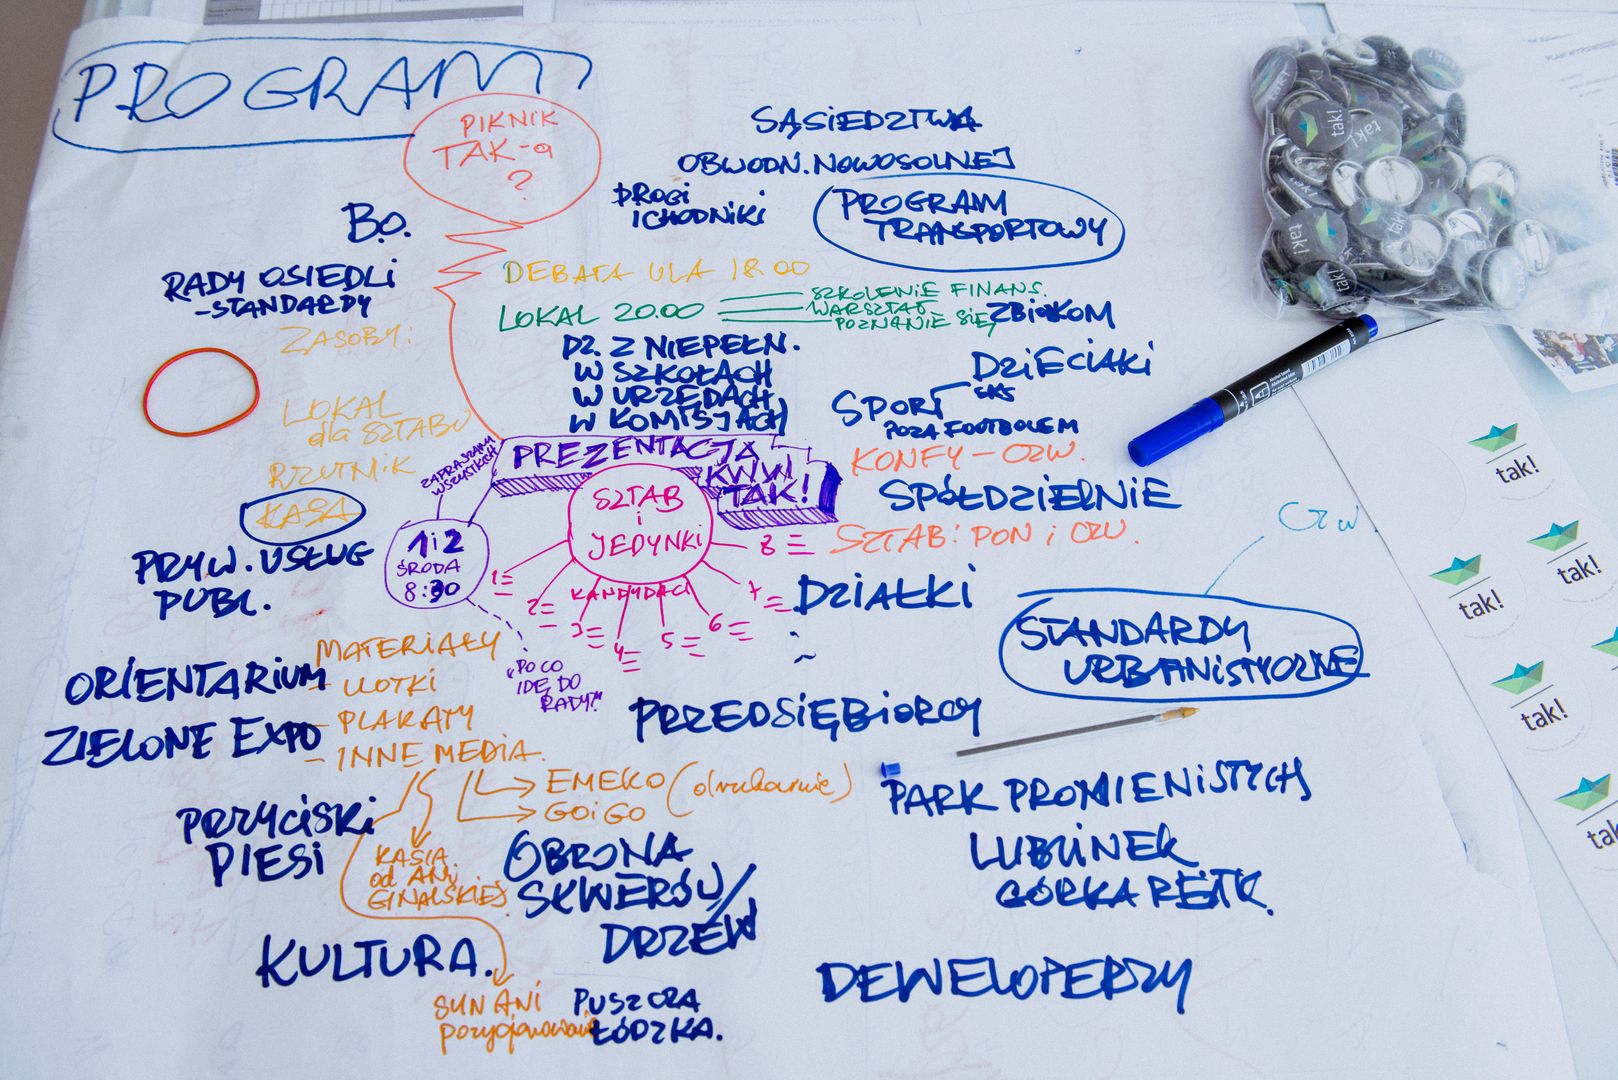 PROGRAM
PIKNIK
TAK-a
?
SĄSIEDZTWA
OBWODN. NOWOSOLNEJ
DROGI
I CHODNIKI
PROGRAM
TRANSPORTOWY
B.O.
RADY OSIEDLI
- STANDARDY
DEBATA ULA 18:00
LOKAL 20.00
SZKOLENIE FINANS.
WARSZTAT
POZNANIE SIĘ
ZBIORKOM
ZASOBY:
LOKAL
dla SZTABU
RZUTNIK
KASA
DZ. Z NIEPEŁN.
W SZKOŁACH
W URZĘDACH
W KOMISJACH
DZIECIAKI
SKS
SPORT
POZA FOOTBOLEM
KONFY - CZW.
SPÓŁDZIELNIE
SZTAB: PON i CZW.
ZAPRASZAMY
WSZYSTKICH
PREZENTACJA
KWW
TAK!
SZTAB
i
JEDYNKI
KANDYDACI
1
2
3
4
5
6
7
8
1i2
ŚRODA
8:30
"PO CO
IDĘ DO
RADY?"
PRYW. USŁUG
PUBL.
DZIAŁKI
Czw.
STANDARDY
URBANISTYCZNE
MATERIAŁY
- ULOTKI
- PLAKATY
- INNE MEDIA
ORIENTARIUM
ZIELONE EXPO
PRZEDSIĘBIORCY
EMEKO (drukarnie)
GOiGO
PRZYCISKI
PIESI
KASIA
od ANi
GINALSKIEJ
OBRONA
SKWERÓW/
DRZEW
PARK PROMIENISTYCH
LUBLINEK
GÓRKA RETK.
KULTURA.
DEWELOPERZY
SYN ANI
pozycjonowanie
PUSZCZA
ŁÓDZKA.
tak!
tak!
tak!
tak!
tak!
tak!
tak!
tak!
tak!
tak!